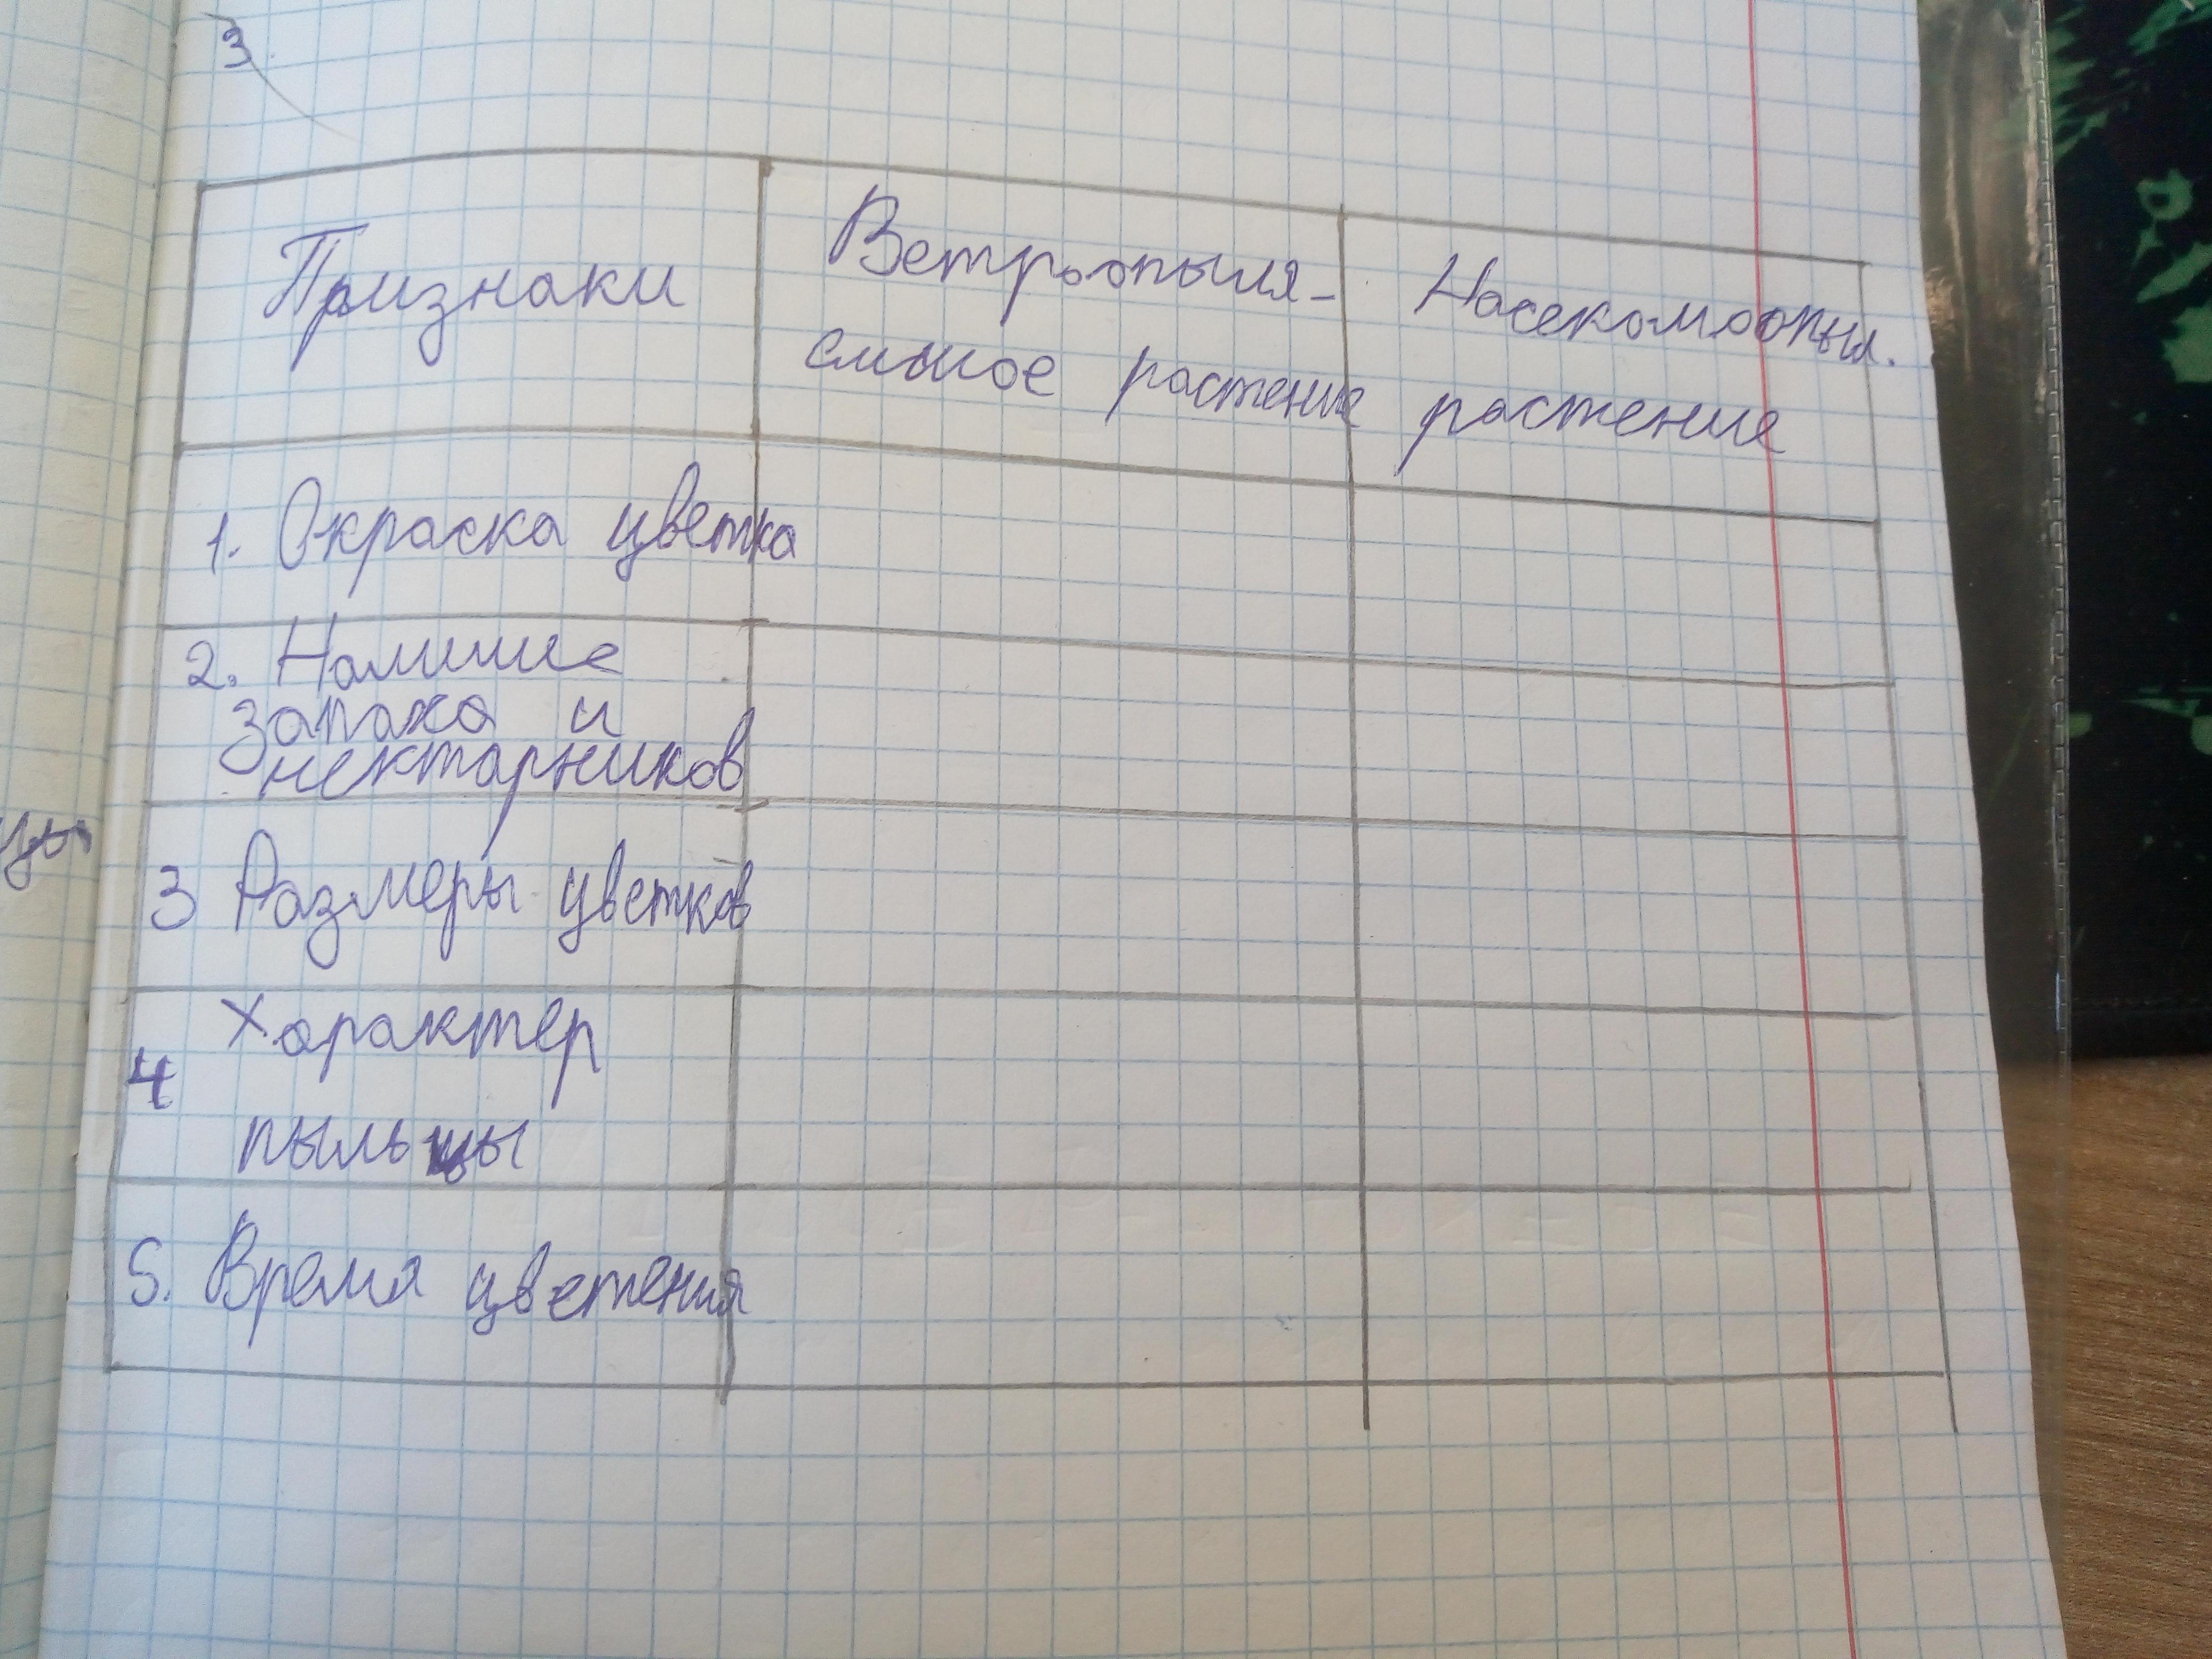 3
Признаки
Ветроопыля-
емыое растение
Насекомоопыл.
растение
1. Окраска цветка
2. Наличие
запаха и
нектарников
3 Размеры цветков
4 Характер
пыльцы
5. Время цветения
цы